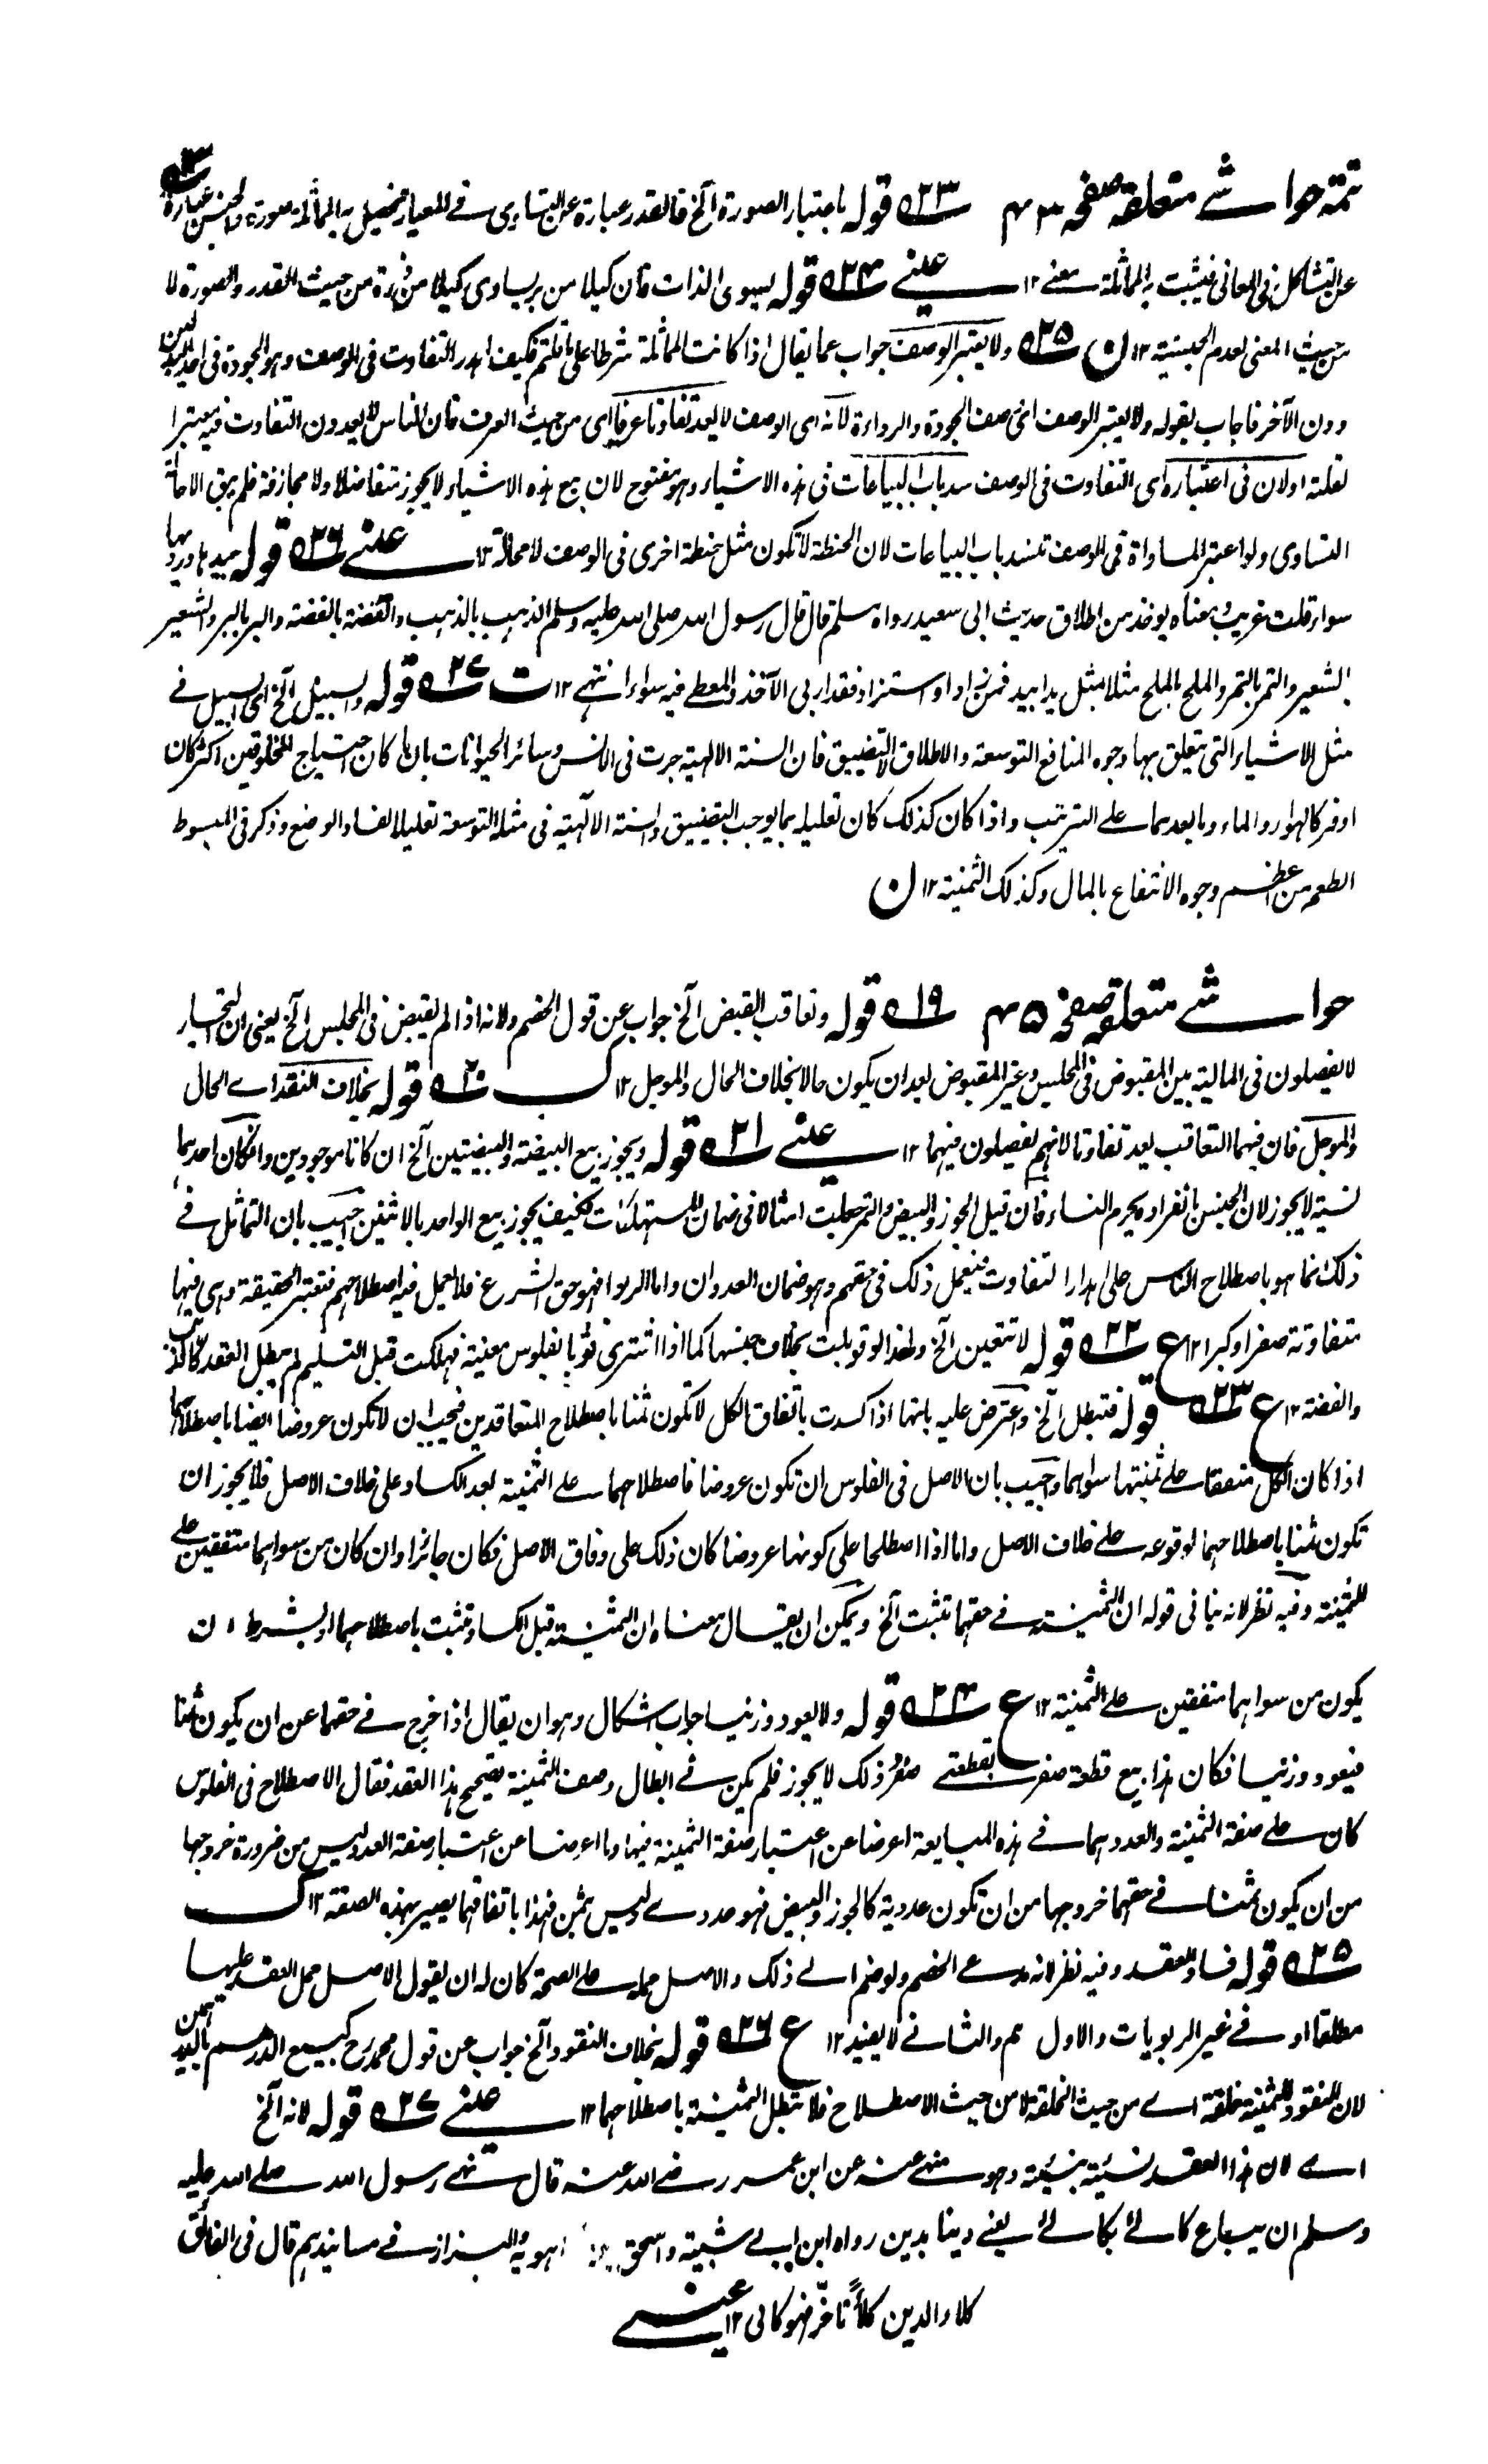 تتمة حواشے متعلقہ صفحہ ۴۳ ۲۳ قولہ باعتبار الصورة الخ فالقدر عبارة عن التساوی فے المعیار فیحصل بہ المماثلة صورة والجنس عبارة
عن التشاکل فی المعانی فیثبت بہ المماثلة معنے ۱۲ عینے ۲۴ قولہ یسوی الذات فان کیلا من بر یساوی کیلا من ذرة من حیث القدر والصورة لا
من حیث المعنی لعدم الجنسیة ۱۲ ن ۲۵ ولا یعتبر الوصف جواب عما یقال اذا کانت المماثلة شرطا علی ما قلتم فکیف اہدر التفاوت فی الوصف وہو الجودة فی احد البدلین
دون الآخر فاجاب بقولہ ولا یعتبر الوصف ای وصف الجودة والرداءة لانہ ای الوصف لا یعد تفاوتا عرفا ای من حیث العرف فان الناس لا یعدون التفاوت فیہ معتبرا
لقلتہ اولان فی اعتبارہ ای التفاوت فی الوصف سد باب البیاعات فی ہذہ الاشیاء وہو مفتوح لان بیع ہذہ الاشیاء لا یجوز متفاضلا ولا مجازفة فلم یبق الا حالة
التساوی ولو اعتبر المساواة فی الوصف تنسد باب البیاعات لان الحنطة لا تکون مثل حنطة اخری فی الوصف لا محالة ۱۲ عینے ۲۶ قولہ جیدہا وردیہا
سواء قلت غریب ومعناہ یوخذ من اطلاق حدیث ابی سعید رواہ مسلم قال قال رسول اللہ صلی اللہ علیہ وسلم الذہب بالذہب والفضة بالفضة والبر بالبر والشعیر
بالشعیر والتمر بالتمر والملح بالملح مثلا بمثل یدا بید فمن زاد او استزاد فقد اربی الآخذ والمعطے فیہ سواء انتہے ۱۲ ت ۲۷ قولہ والسبیل الخ ای السبیل فے
مثل الاشیاء التی یتعلق بہا وجوہ المنافع التوسعة والاطلاق لا التضییق فان السنة الالہیة جرت فی الانس وسائر الحیوانات بان ما کان احتیاج المخلوقین اکثر کان
اوفر کالہواء والماء وما بعدہما علے الترتیب واذا کان کذلک کان تعلیلہ بما یوجب التضییق والسنة الآلہیة فی مثلہ التوسعة تعلیلا لفساد الوضع وذکر فی المبسوط
الطعم من اعظم وجوہ الانتفاع بالمال وکذلک الثمنیة ۱۲ ن
حواشے متعلقہ صفحہ ۴۵ ۱۹ قولہ وتعاقب القبض الخ جواب عن قول الخصم ولانہ اذا لم یقبض فی المجلس الخ یعنی ان التجار
لا یفصلون فی المالیة بین المقبوض فی المجلس وغیر المقبوض بعد ان یکون حالا بخلاف الحال والموجل ۱۲ ک ۲۰ قولہ بخلاف النقد اے الحال
والموجل فان فیہما التعاقب یعد تفاوتا لانہم یفصلون فیہما ۱۲ عینے ۲۱ قولہ ویجوز بیع البیضة والبیضتین الخ ان کانا موجودین وان کان احدہما
نسیة لا یجوز لان الجنس بانفرادہ یحرم النساء فان قیل الجوز والبیض والتمر جعلت امثالا فی ضمان المستہلکات فکیف یجوز بیع الواحد بالاثنین اجیب بان التماثل فے
ذلک انما ہو باصطلاح الناس علی اہدار التفاوت فیعمل ذلک فی حقہم وہو ضمان العدوان واما الربوا فہو حق الشرع فلا یعمل فیہ اصطلاحہم فتعتبر الحقیقة وہی فیہا
متفاوتة صغرا وکبرا ۱۲ ع ۲۲ قولہ لا تتعین الخ ولہذا لو قوبلت بخلاف جنسہا کما اذا اشتری ثوبا بفلوس معینة فہلکت قبل التسلیم لم یبطل العقد کالذہب
والفضة ۱۲ ع ۲۳ قولہ فتبطل الخ واعترض علیہ بانہا اذا کسدت باتفاق الکل لا تکون ثمنا باصطلاح المتعاقدین فیجب ان لا تکون عروضا ایضا باصطلاحہما
اذا کان الکل متفقا علے ثمنیتہا سواہما واجیب بان الاصل فی الفلوس ان تکون عروضا فاصطلاحہما علے الثمنیة بعد الکساد علی خلاف الاصل فلا یجوز ان
تکون ثمنا باصطلاحہما لوقوعہ علے خلاف الاصل واما اذا اصطلحا علی کونہا عروضا کان ذلک علی وفاق الاصل فکان جائزا وان کان من سواہما متفقین علے
الثمنیة وفیہ نظر لانہ ینافی قولہ ان الثمنیة فے حقہما تثبت الخ ویمکن ان یقال معناہ ان الثمنیة قبل الکساد تثبت باصطلاحہما او بشرط ان
یکون من سواہما متفقین علے الثمنیة ۱۲ ع ۲۴ قولہ ولا یعود وزنیا جواب اشکال وہو ان یقال اذا خرج فے حقہما عن ان یکون ثمنا
فیعود وزنیا فکان ہذا بیع قطعة صفر بقطعتے صفر وذلک لا یجوز فلم یکن فے ابطال وصف الثمنیة تصحیح ہذا العقد فقال الاصطلاح فی الفلوس
کان علے صفة الثمنیة والعدد وہما فے ہذہ المبایعة اعرضا عن اعتبار صفة الثمنیة فیہا وما اعرضا عن اعتبار صفة العدد ولیس من ضرورة خروجہا
من ان یکون ثمنا فے حقہما خروجہا من ان تکون عددیة کالجوز والبیض فہو عددے ولیس بثمن فہذا باتفاقہما یصیر بہذہ الصفة ۱۲ ک
۲۵ قولہ فساد العقد وفیہ نظر لانہ مدعے الخصم ولو ضم الے ذلک والاصل حملہ علے الصحة کان لہ ان یقول الاصل حمل العقد علیہا
مطلقا او فے غیر الربویات والاول مم والثانے لا یفید ۱۲ ع ۲۶ قولہ بخلاف النقود الخ جواب عن قول محمد رح کبیع الدرہم بالدرہمین
لان النقود للثمنیة خلقة اے من حیث الخلقة لا من حیث الاصطلاح فلا تبطل الثمنیة باصطلاحہما ۱۲ عینے ۲۷ قولہ لانہ الخ
اے لان ہذا العقد نسیئة بنسیئة وہو منہے عنہ عن ابن عمر رضے اللہ عنہ قال نہے رسول اللہ صلے اللہ علیہ
وسلم ان یباع کالئ بکالئ یعنے دینا بدین رواہ ابن ابے شیبة واسحق بن راہویہ والبزاز فے مسانیدہم قال فی الفائق
کلاء الدین کلاً تاخّر فہو کالی ۱۲ عینے